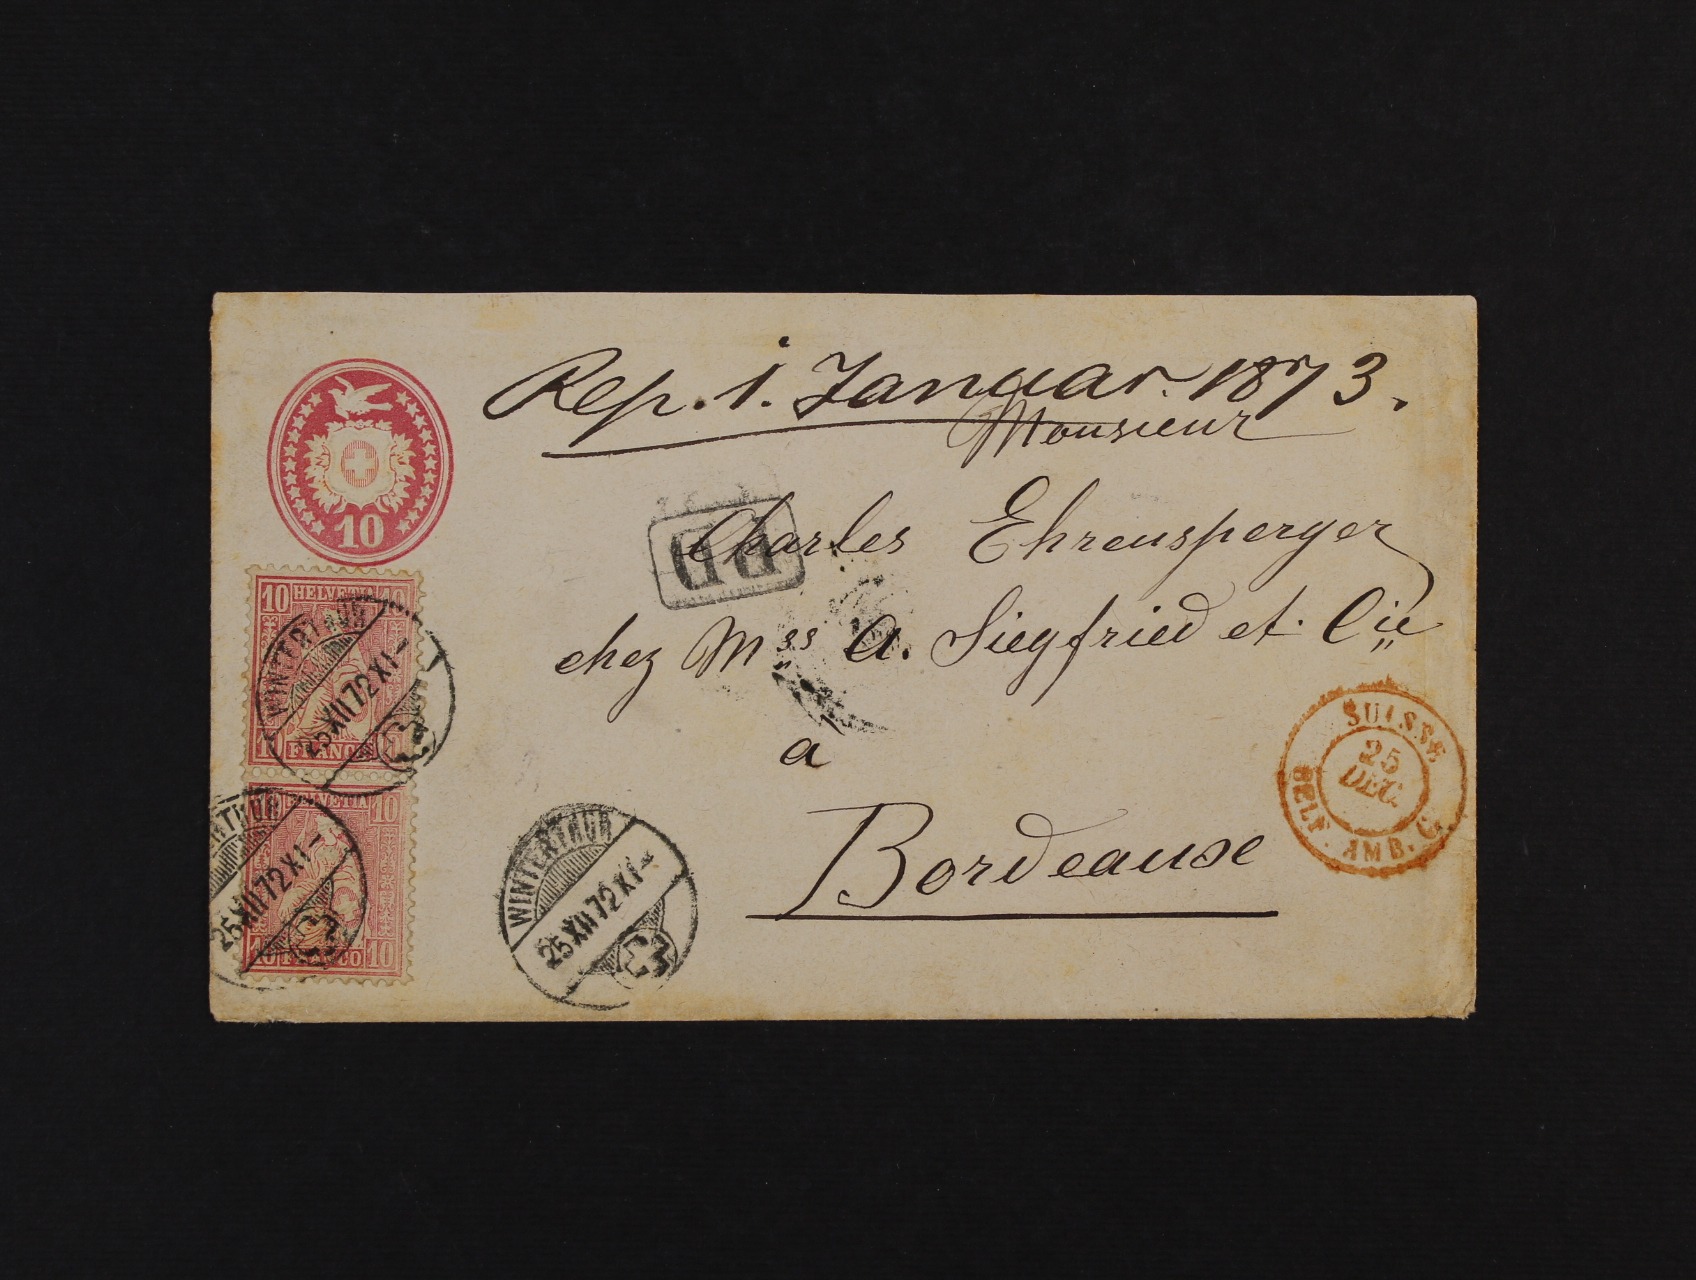 Rep. 1. Januar. 1873.
Monsieur
Charles Ehrensperger
chez Mss A. Siegfried et. Cie
a
Bordeaux
10
PD
10 HELVETIA 10
10 FRANCO
WINTERTHUR
25 XII 72 XI–
HELVETIA 10
10 FRANCO 10
WINTERTHUR
25 XII 72 XI–
WINTERTHUR
25 XII 72 XI–
SUISSE
25
DEC.
BELF. AMB. C.